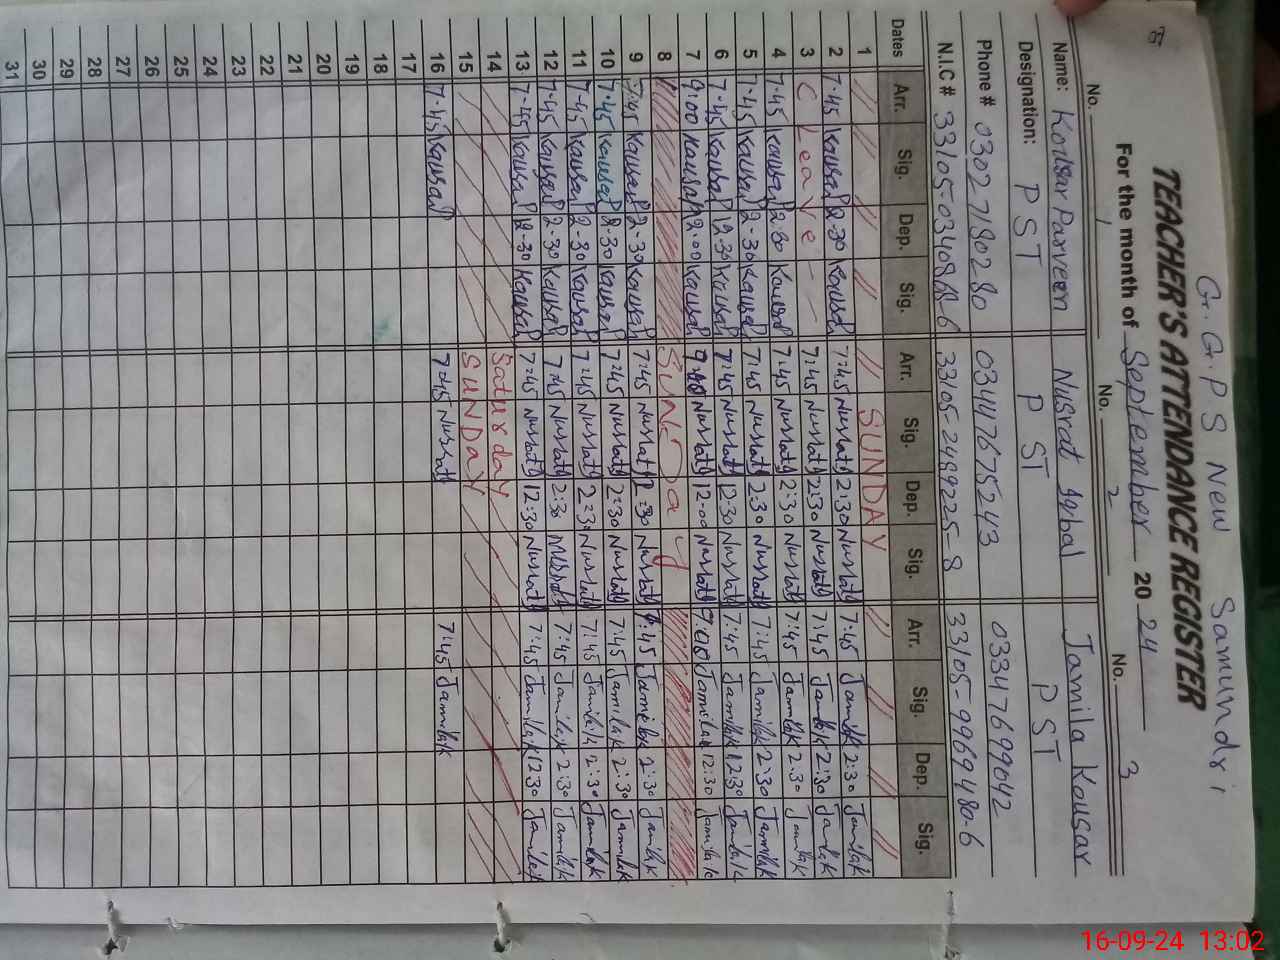 G.G.P S New Samundri
TEACHER'S ATTENDANCE REGISTER
For the month of September 2024
No. 1 No. 2 No. 3
Name: Kousar Parveen Nusrat Iqbal Jamila Kousar
Designation: P ST P ST P ST
Phone # 0302 7190280 03447675243 03347699042
N.I.C # 33105-0340868-6 33105-2489225-8 33105-9969480-6
Dates Arr. Sig. Dep. Sig. Arr. Sig. Dep. Sig. Arr. Sig. Dep. Sig.
1 SUNDAY
2 7-45 Kausar 2-30 Kausar 7:45 Nusrat 2:30 Nusrat 7:45 Jamilak 2:30 Jamilak
3 C Leave - 7:45 Nusrat 2:30 Nusrat 7:45 Jamilak 2:30 Jamilak
4 7-45 Kausar 2-30 Kausar 7:45 Nusrat 2:30 Nusrat 7:45 Jamilak 2:30 Jamilak
5 7-45 Kausar 2-30 Kausar 7:45 Nusrat 2:30 Nusrat 7:45 Jamilak 2:30 Jamilak
6 7-45 Kausar 12-30 Kausar 7:45 Nusrat 12-30 Nusrat 7:45 Jamilak 12:30 Jamilak
7 9:00 Kausar 12:00 Kausar Nusrat 12-00 Nusrat 9:00 Jamilak 12:30 Jamilak
8 SUNDay
9 7:45 Kausar 2-30 Kausar 7:45 Nusrat 2:30 Nusrat 7:45 Jamilak 2:30 Jamilak
10 7-45 Kausar 2-30 Kausar 7:45 Nusrat 2:30 Nusrat 7:45 Jamilak 2:30 Jamilak
11 7-45 Kausar 2-30 Kausar 7:45 Nusrat 2:30 Nusrat 7:45 Jamilak 2:30 Jamilak
12 7-45 Kausar 2-30 Kausar 7:45 Nusrat 2:30 Nusrat 7:45 Jamilak 2:30 Jamilak
13 7-45 Kausar 12-30 Kausar 7:45 Nusrat 12:30 Nusrat 7:45 Jamilak 12:30 Jamilak
14 Satur day
15 SUNDAY
16 7-45 Kausar 7:45 Nusrat 7:45 Jamilak
17
18
19
20
21
22
23
24
25
26
27
28
29
30
31
16-09-24 13:02